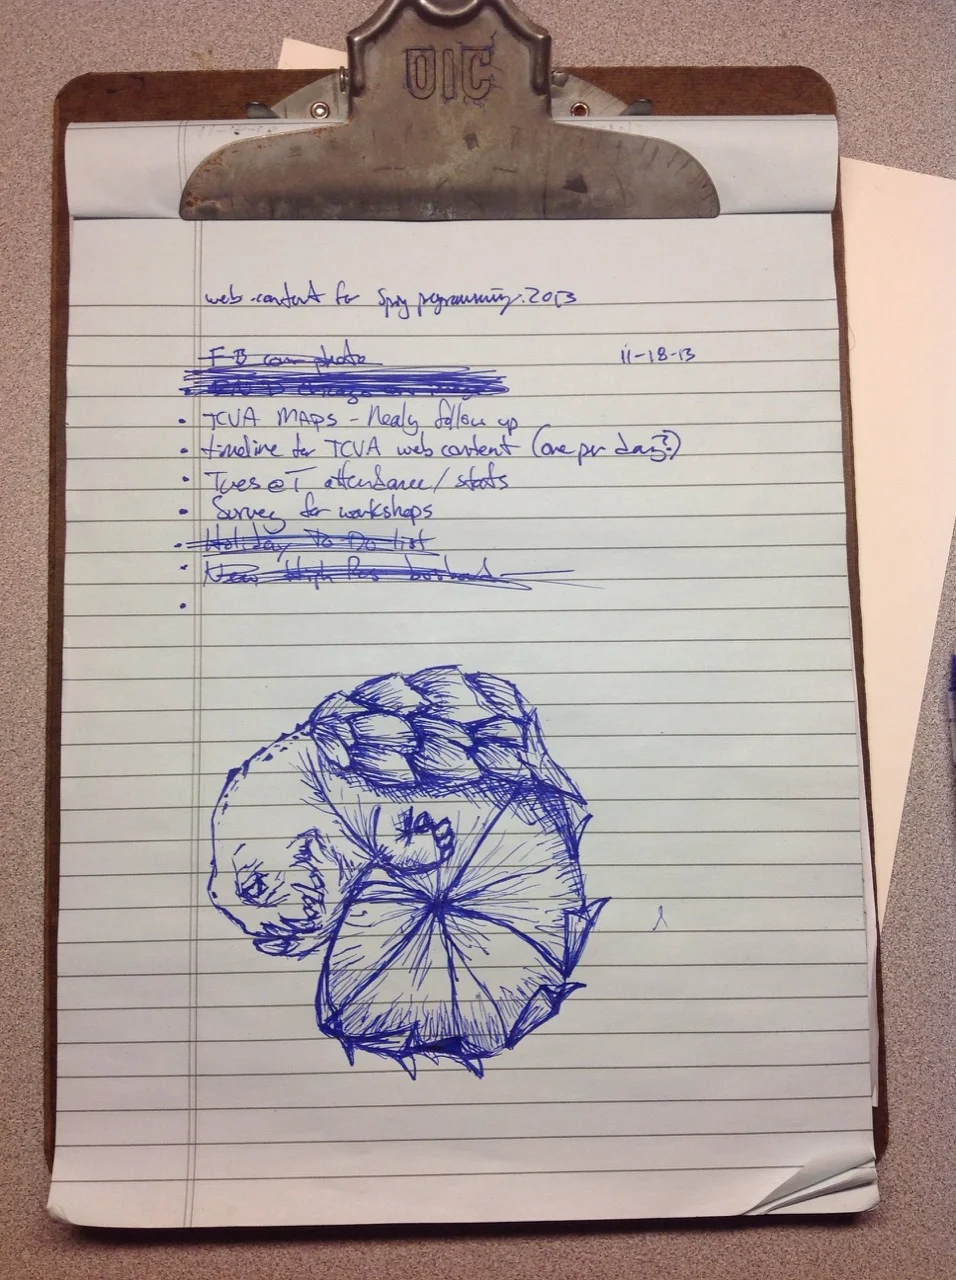 UIC
web content for Spring programming. 2013
FB com photo
11-18-13
TCVA MAPS - Nealy follow up
• timeline for TCVA web content (one per day?)
• Tues @ T attendance / stats
• Survey for workshops
• Holiday To Do list
• New High Res
•